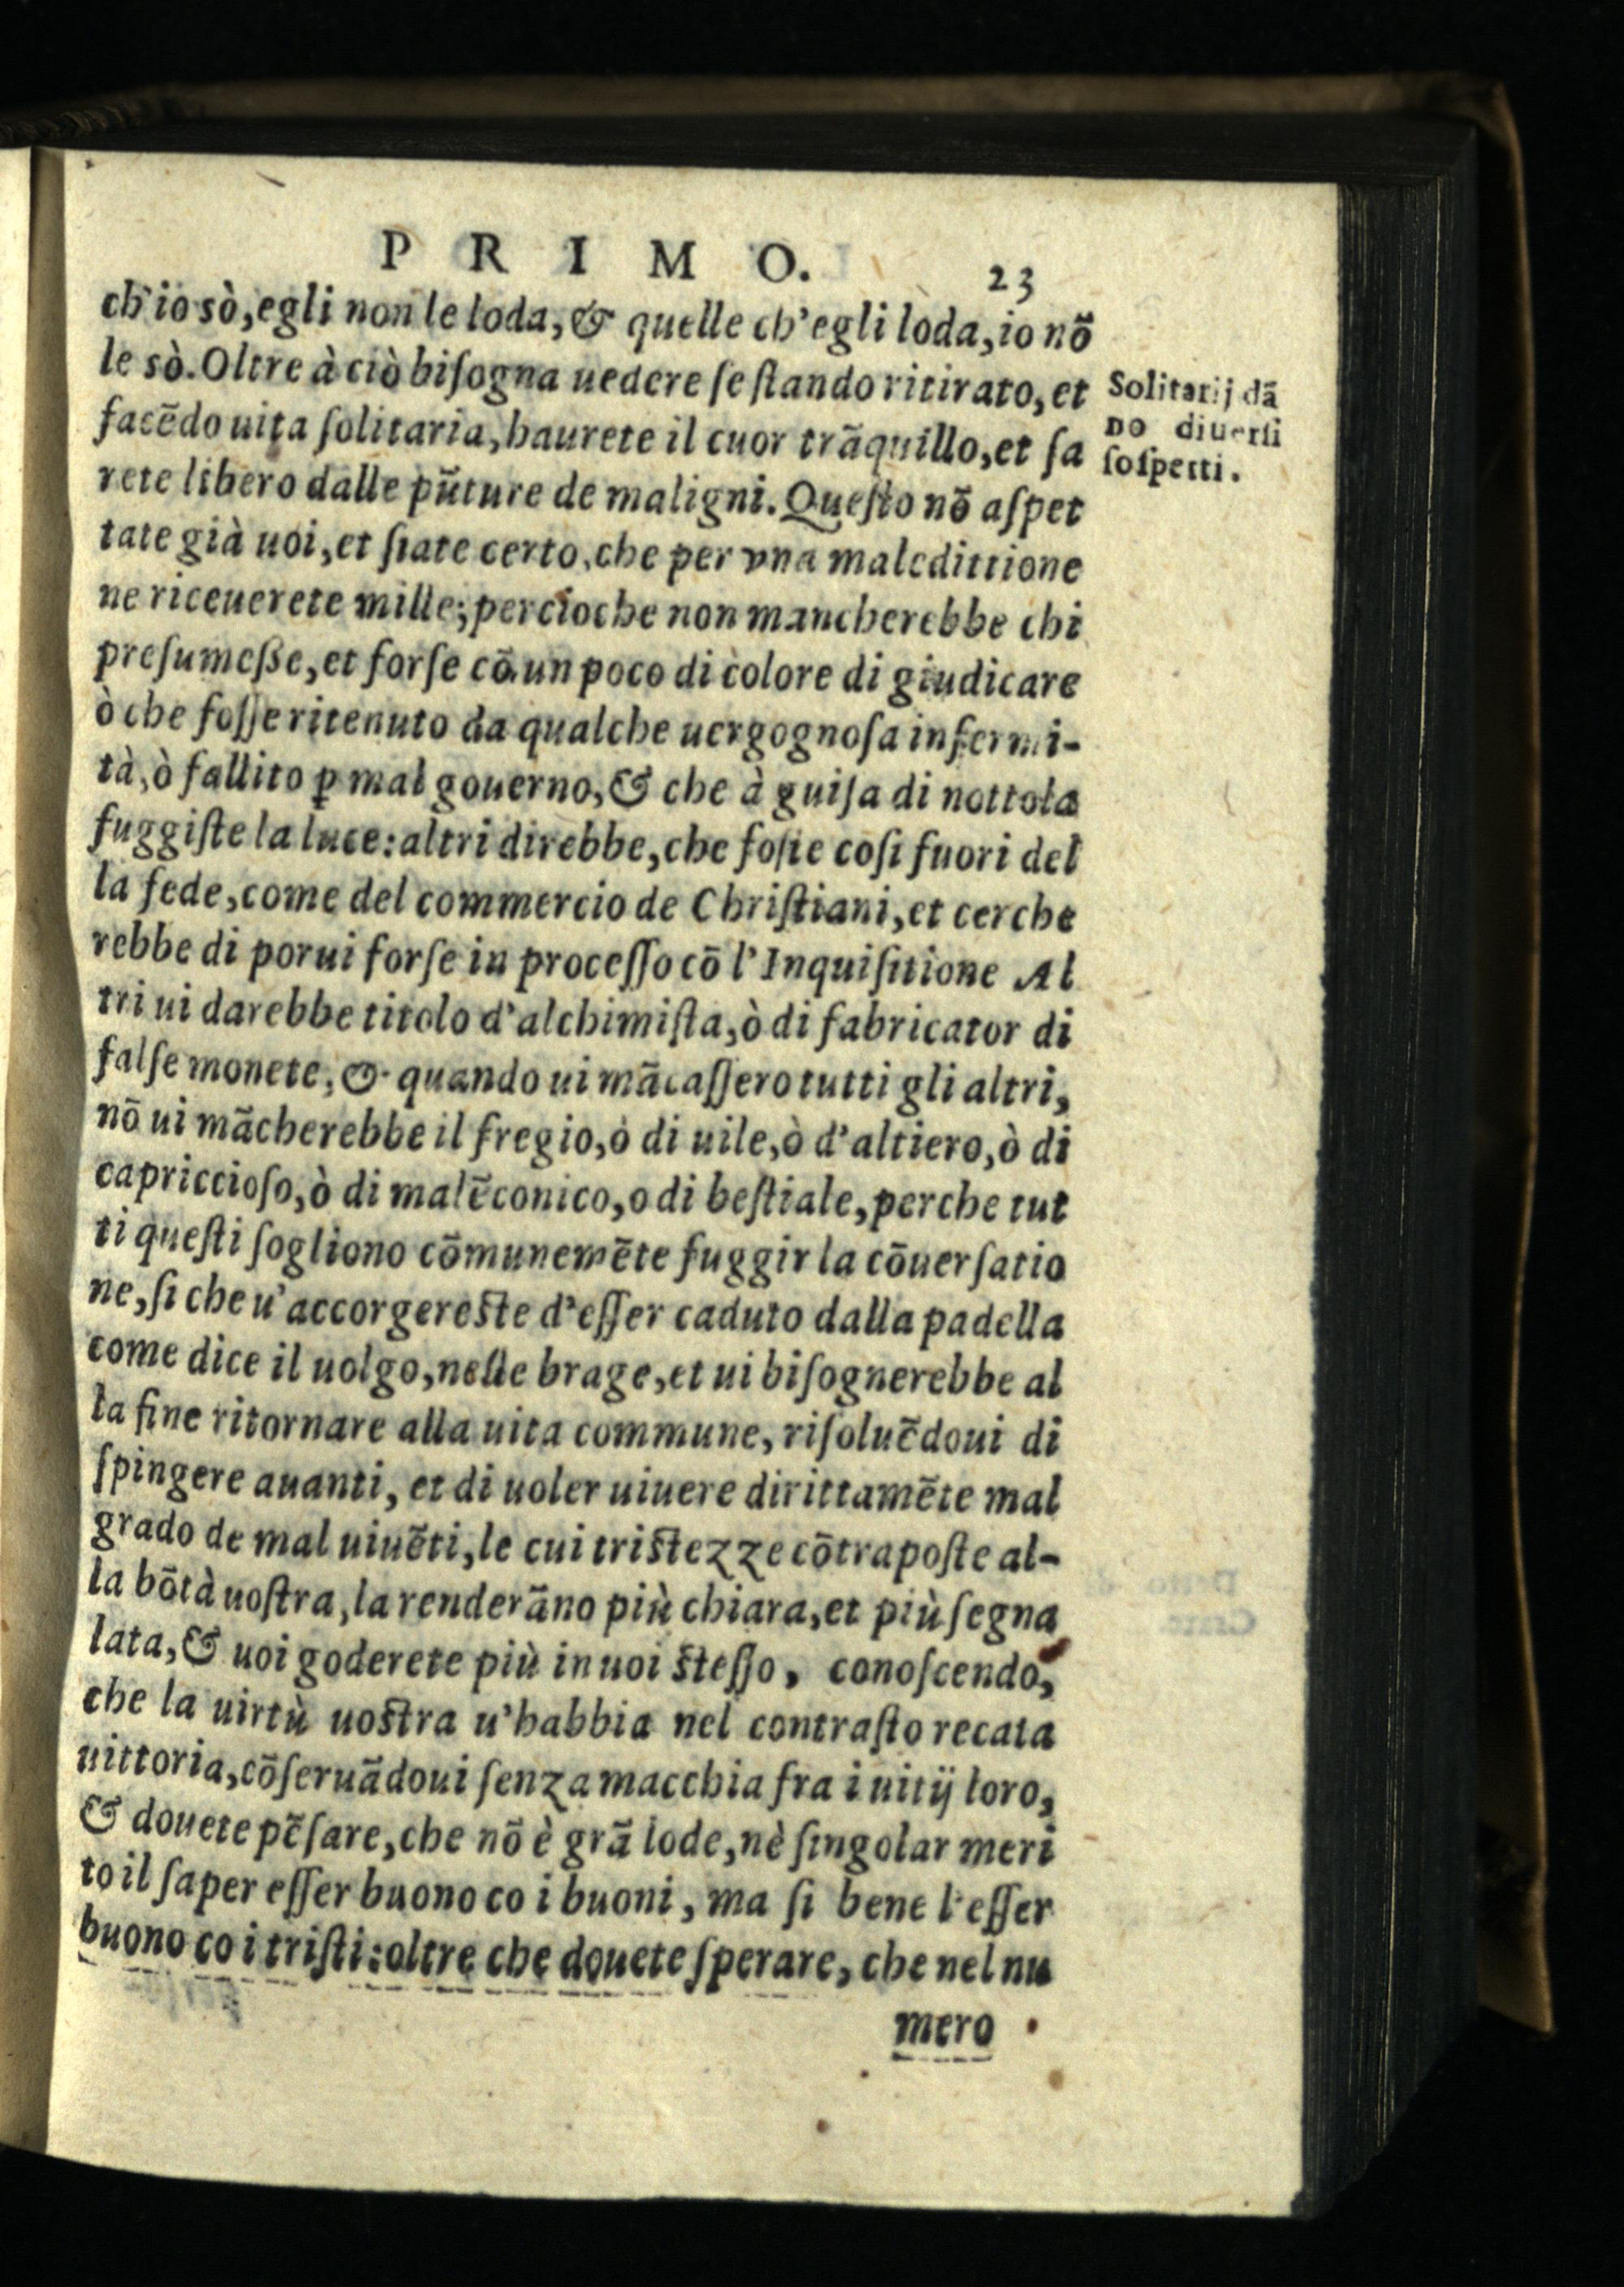 PRIMO. 23
ch'io sò, egli non le loda, & quelle ch'egli loda, io nō
le sò. Oltre à ciò biſogna uedere ſe ſtando ritirato, et
facēdo uita ſolitaria, haurete il cuor trāquillo, et ſa
rete libero dalle pūture de maligni. Queſto nō aſpet
tate già uoi, et ſiate certo, che per vna maledittione
ne riceuerete mille; percioche non mancherebbe chi
preſumeſſe, et forſe cō un poco di colore di giudicare
ò che foſſe ritenuto da qualche uergognoſa infermi-
tà, ò fallito ꝑ mal gouerno, & che à guiſa di nottola
fuggiſte la luce: altri direbbe, che foſte coſi fuori del
la fede, come del commercio de Chriſtiani, et cerche
rebbe di porui forſe in proceſſo cō l'Inquiſitione Al
tri ui darebbe titolo d'alchimiſta, ò di fabricator di
falſe monete, & quando ui mācaſſero tutti gli altri,
nō ui mācherebbe il fregio, ò di uile, ò d'altiero, ò di
capriccioſo, ò di malēconico, o di beſtiale, perche tut
ti queſti ſogliono cōmunemēte fuggir la cōuerſatio
ne, ſi che u'accorgereſte d'eſſer caduto dalla padella
come dice il uolgo, nelle brage, et ui biſognerebbe al
la fine ritornare alla uita commune, riſoluēdoui di
ſpingere auanti, et di uoler uiuere dirittamēte mal
grado de mal uiuēti, le cui triſtezze cōtrapoſte al-
la bōtà uoſtra, la renderāno più chiara, et più ſegna
lata, & uoi goderete più in uoi ſteſſo, conoſcendo,
che la uirtù uoſtra u'habbia nel contraſto recata
uittoria, cōſeruādoui ſenza macchia fra i uitij loro,
& douete pēſare, che nō è grā lode, nè ſingolar meri
to il ſaper eſſer buono co i buoni, ma ſi bene l'eſſer
buono co i triſti: oltre che douete ſperare, che nel nu
mero
Solitarij dā
no diuerſi
ſoſpetti.